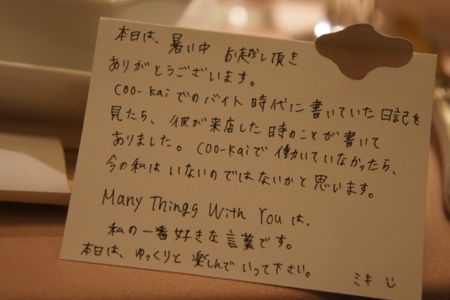 本日は、暑い中 お越し頂き
ありがとうございます。
coo-kaiでのバイト時代に書いていた日記を
見たら、彼が来店した時のことが書いて
ありました。coo-kaiで働いていなかったら、
今の私はいないのではないかと思います。
Many Thingg With You は、
私の一番好きな言葉です。
本日は、ゆっくりと楽しんでいって下さい。
ミキ